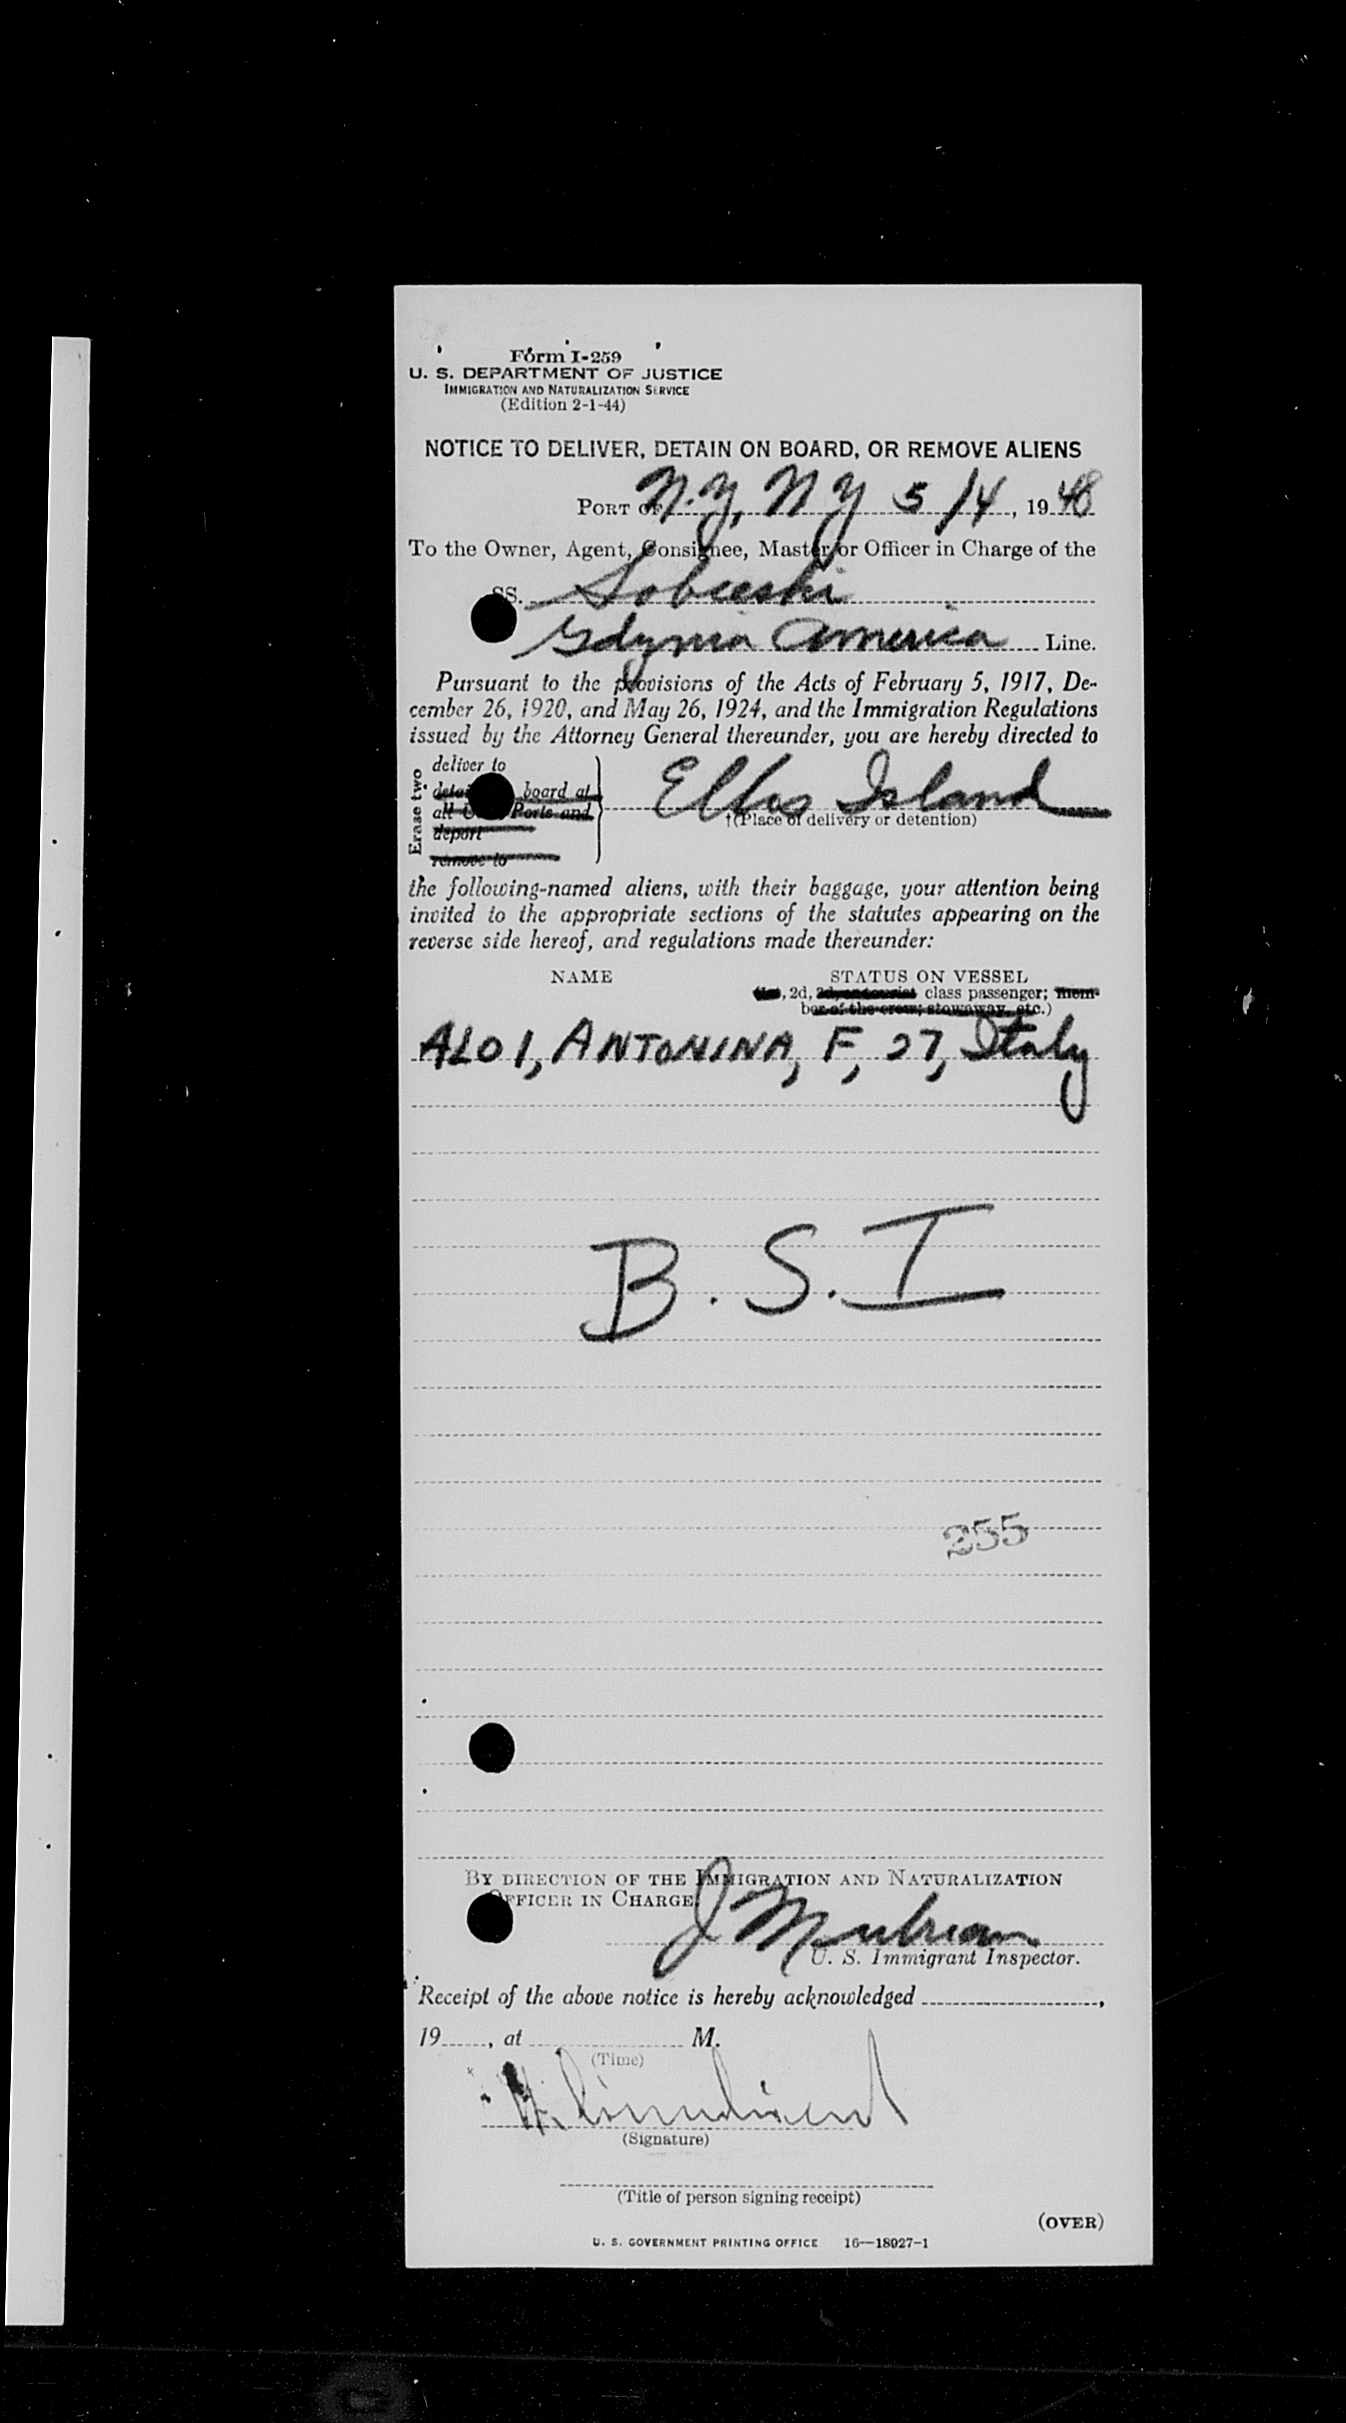 Form I-259
U. S. DEPARTMENT OF JUSTICE
IMMIGRATION AND NATURALIZATION SERVICE
(Edition 2-1-44)
NOTICE TO DELIVER, DETAIN ON BOARD, OR REMOVE ALIENS
PORT OF N.Y, N Y 5/4, 1948
To the Owner, Agent, Consignee, Master, or Officer in Charge of the
SS. Sobieski
Gdynia America Line.
Pursuant to the provisions of the Acts of February 5, 1917, De-
cember 26, 1920, and May 26, 1924, and the Immigration Regulations
issued by the Attorney General thereunder, you are hereby directed to
Erase two
deliver to
board at
all Ports and
deport
remove to
Ellis Island
†(Place of delivery or detention)
the following-named aliens, with their baggage, your attention being
invited to the appropriate sections of the statutes appearing on the
reverse side hereof, and regulations made thereunder:
NAME STATUS ON VESSEL
, 2d, class passenger; mem-
ber of the crew; stowaway, etc.)
ALOI, ANTONINA, F, 27, Italy
B.S.I
255
BY DIRECTION OF THE IMMIGRATION AND NATURALIZATION
OFFICER IN CHARGE
J
U. S. Immigrant Inspector.
Receipt of the above notice is hereby acknowledged ,
19 , at M.
(Time)
(Signature)
(Title of person signing receipt)
(OVER)
U. S. GOVERNMENT PRINTING OFFICE 16—18027-1